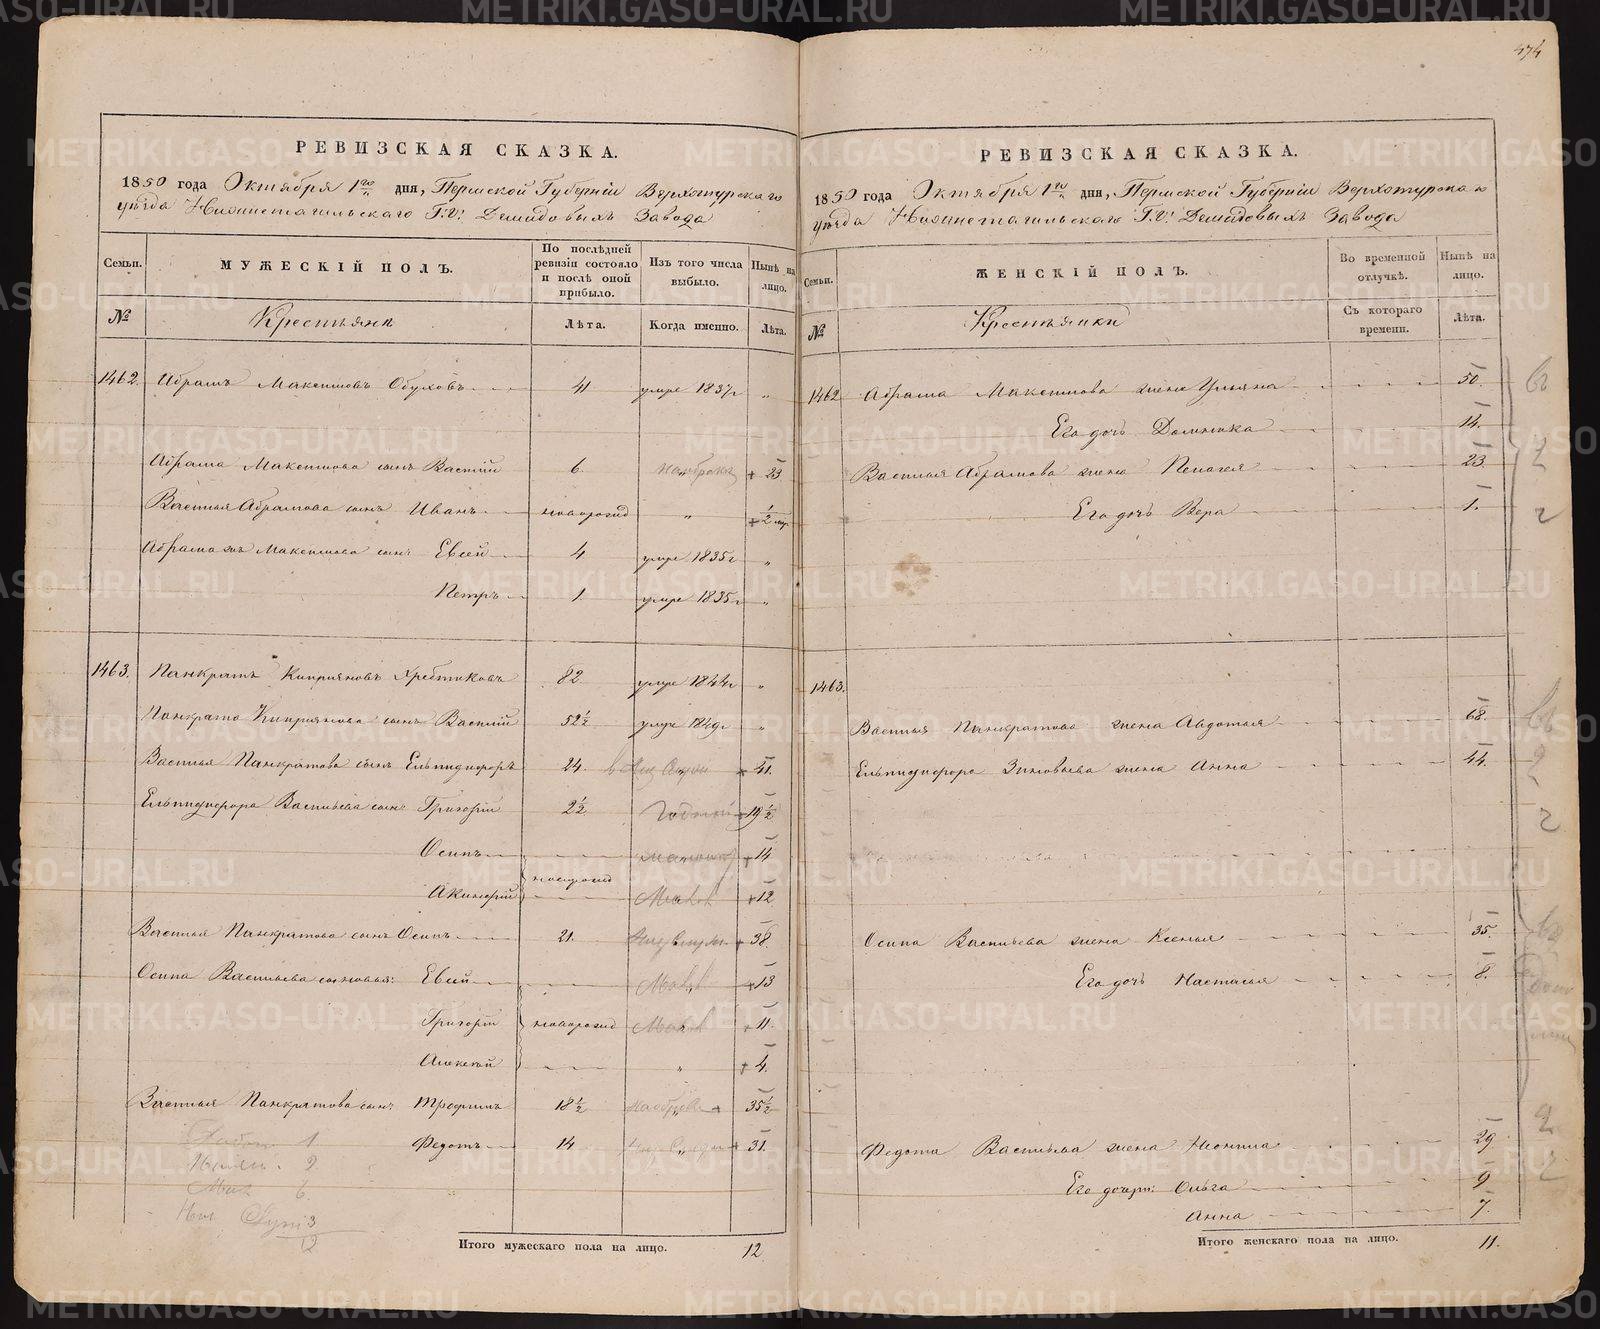 474
РЕВИЗСКАЯ СКАЗКА.
1850 года Октября 1го дня, Пермской Губернiи Верхотурскаго
уѣзда Нижнетагильскаго Г.г. Демидовыхъ Завода
Семьи.
МУЖЕСКІЙ ПОЛЪ.
По послѣдней ревизіи состояло и послѣ оной прибыло.
Изъ того числа выбыло.
Нынѣ на лицо.
№
Крестьяне
Лѣта.
Когда именно.
Лѣта.
1462. Абрамъ Максимовъ Обуховъ 41 умре 1837г "
Абрама Максимова сынъ Василiй 6. 23
Василья Абрамова сынъ Иванъ новорожд " 1/2
Абрама жъ Максимова сын Евсей 4 умре 1835г "
Петръ 1. умре 1835г "
1463. Панкратъ Киприяновъ Хребтиковъ 82 умре 1844г "
Панкрата Киприянова сынъ Василiй 52 1/2 умре 1849г "
Василья Панкратова сынъ Ельпидифоръ 24. 41.
Ельпидифора Васильева сын Григорiй 2 1/2 19 1/2
Осипъ 14
новорожд
Акинфiй 12
Василья Панкратова сынъ Осипъ 21. 38.
Осипа Васильева сыновья: Евсей 13
Григорiй новорожд 11.
Алексѣй " 4.
Василья Панкратова сын Трофимъ 18 1/2 35 1/2
Федотъ 14 31.
1
2
6
3
12
Итого мужескаго пола на лицо. 12
РЕВИЗСКАЯ СКАЗКА.
1850 года Октября 1го дня, Пермской Губернiи Верхотурскаго
уѣзда Нижнетагильскаго Г.г. Демидовыхъ Завода
Семьи.
ЖЕНСКІЙ ПОЛЪ.
Во временной отлучкѣ.
Нынѣ на лицо.
№
Крестьянки
Съ котораго времени.
Лѣта.
1462 Абрама Максимова жена Ульяна 50.
Его дочь Домника 14.
Василья Абрамова жена Пелагея 23.
Его дочь Вера 1.
1463.
Василья Панкратова жена Авдотья 68.
Ельпидифора Зиновьева жена Анна 44.
Осипа Васильева жена Ксенья 35.
Его дочь Настасья 8.
Федота Васильева жена 29
Его дочери: Ольга 9
Анна 7.
Итого женскаго пола на лицо. 11.
METRIKI.GASO-URAL.RU